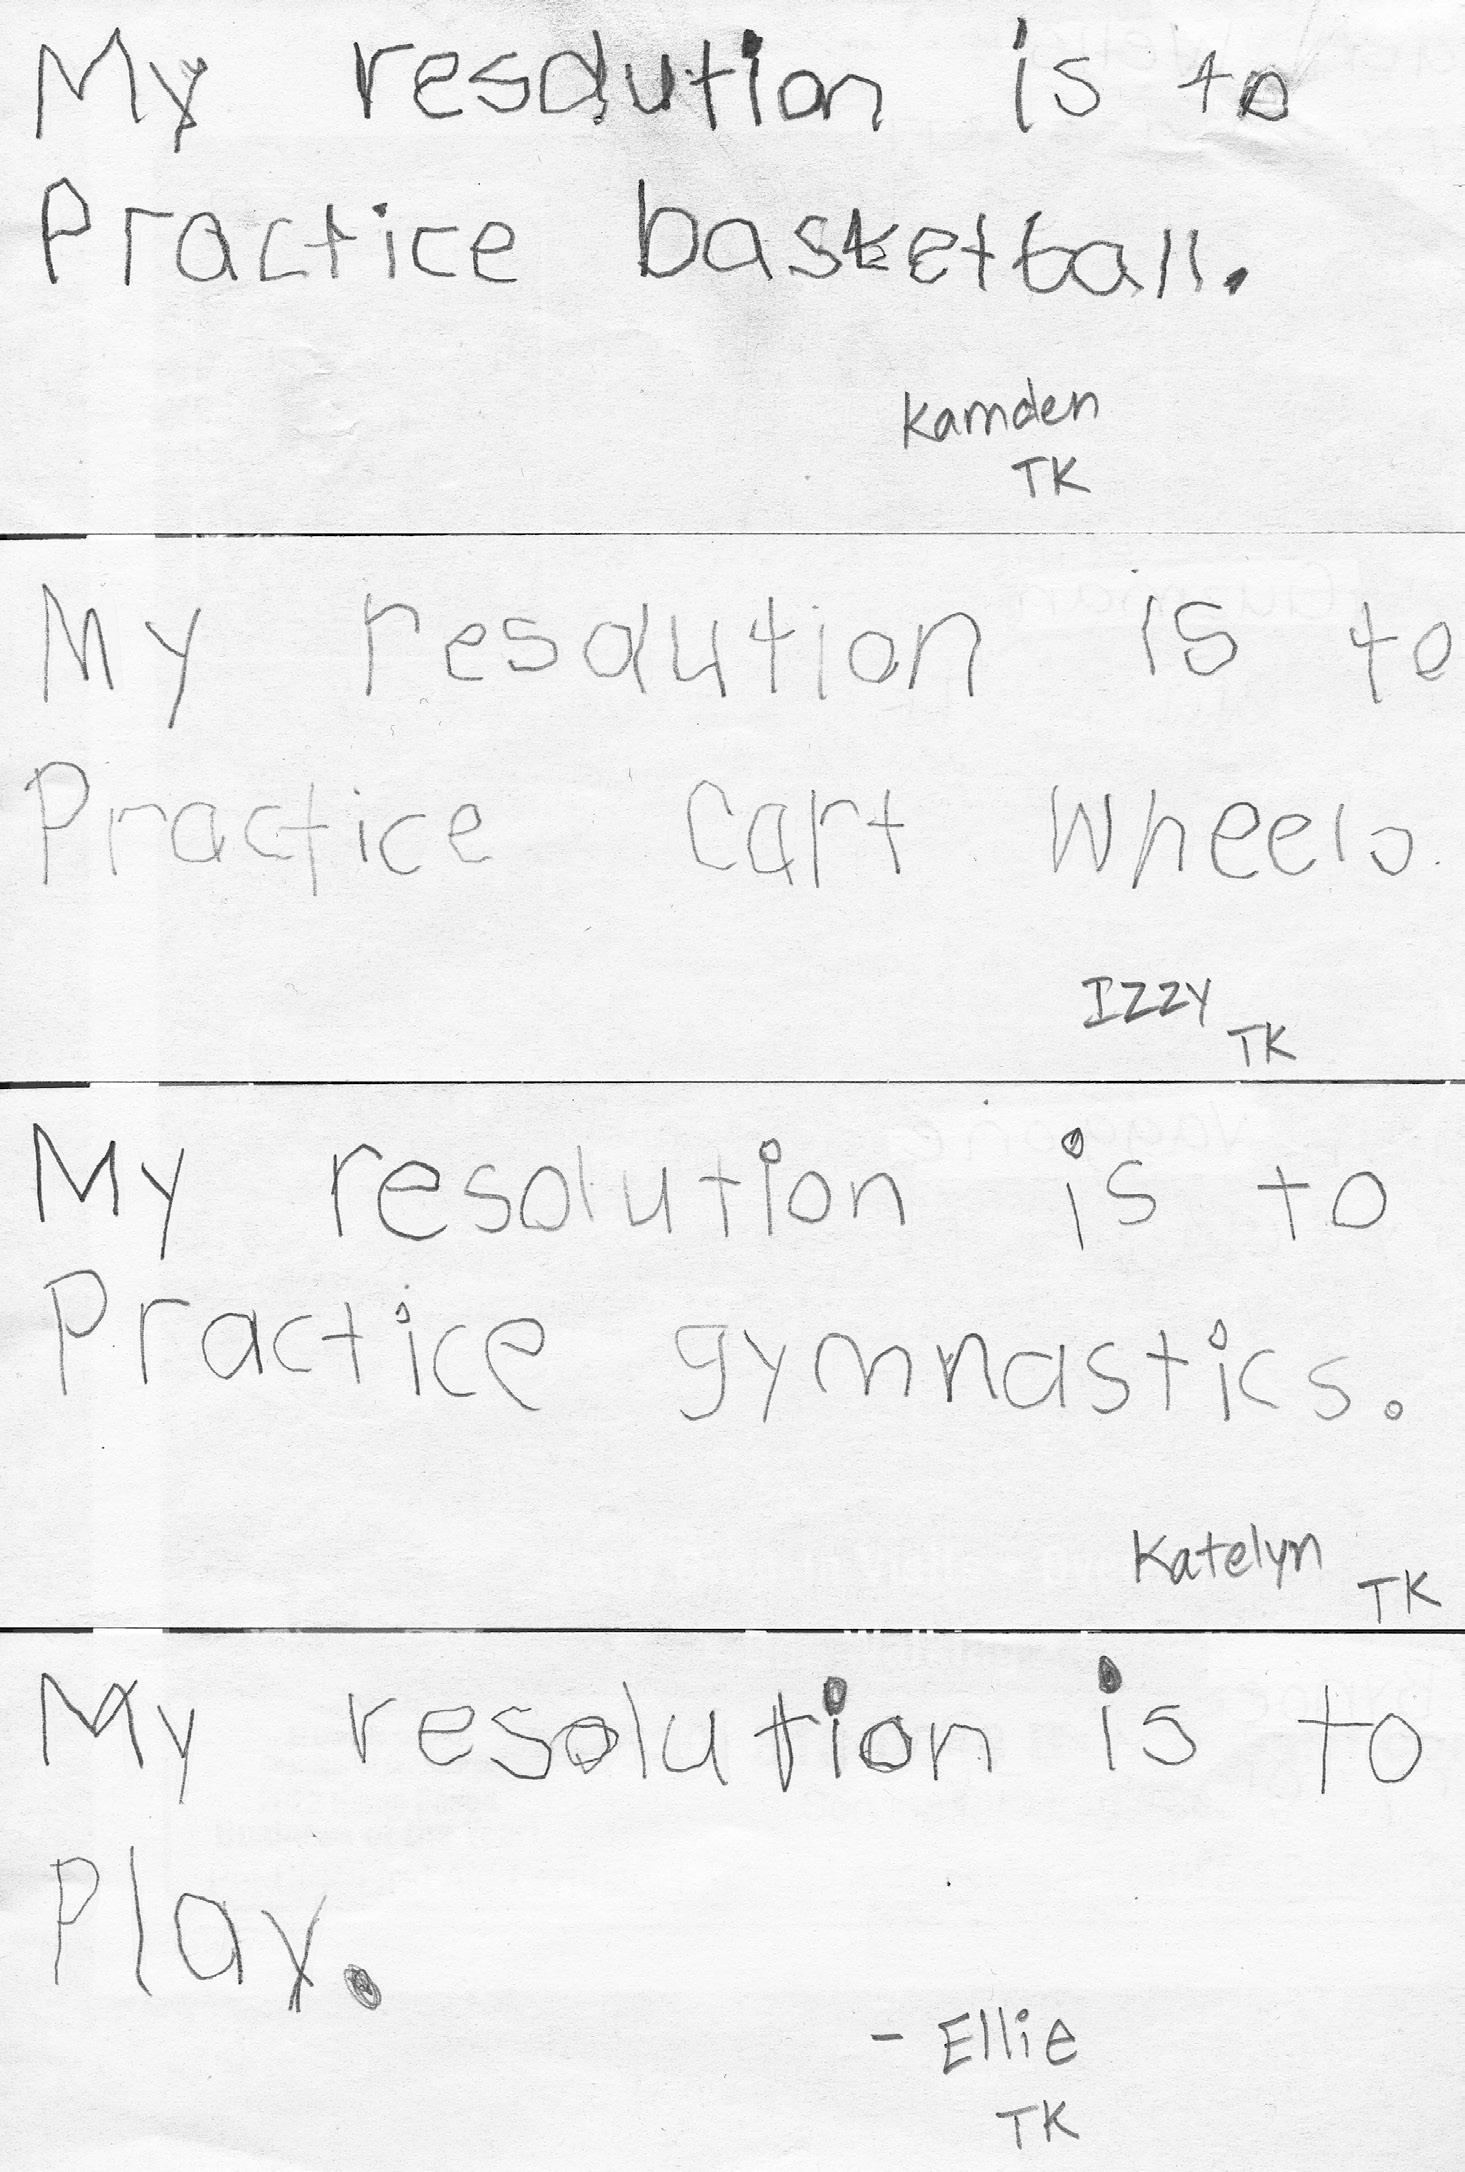 My resolution is to
Practice basketball.
Kamden
TK
My resolution is to
Practice Cart Wheels.
IZZY
TK
My resolution is to
Practice gymnastics.
Katelyn
TK
My resolution is to
Play.
- Ellie
TK